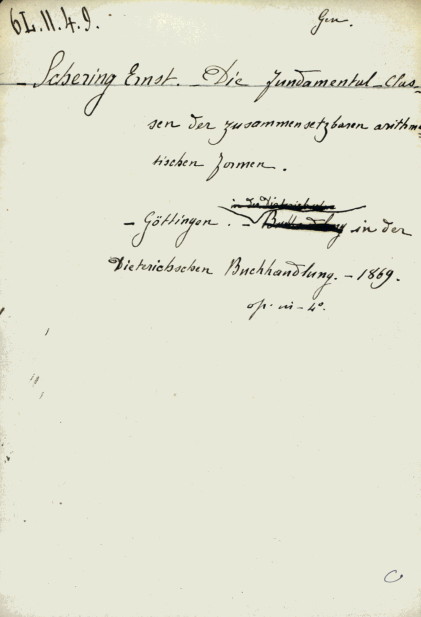 6L.11.4.9.
Gen.
Schering Ernst. Die fundamental-Clas-
sen der zusammensetzbaren arithme-
tischen formen.
in die Dieterichschen
- Göttingen. - in der
Dieterichschen Buchhandlung. - 1869.
op. in - 4°.
C